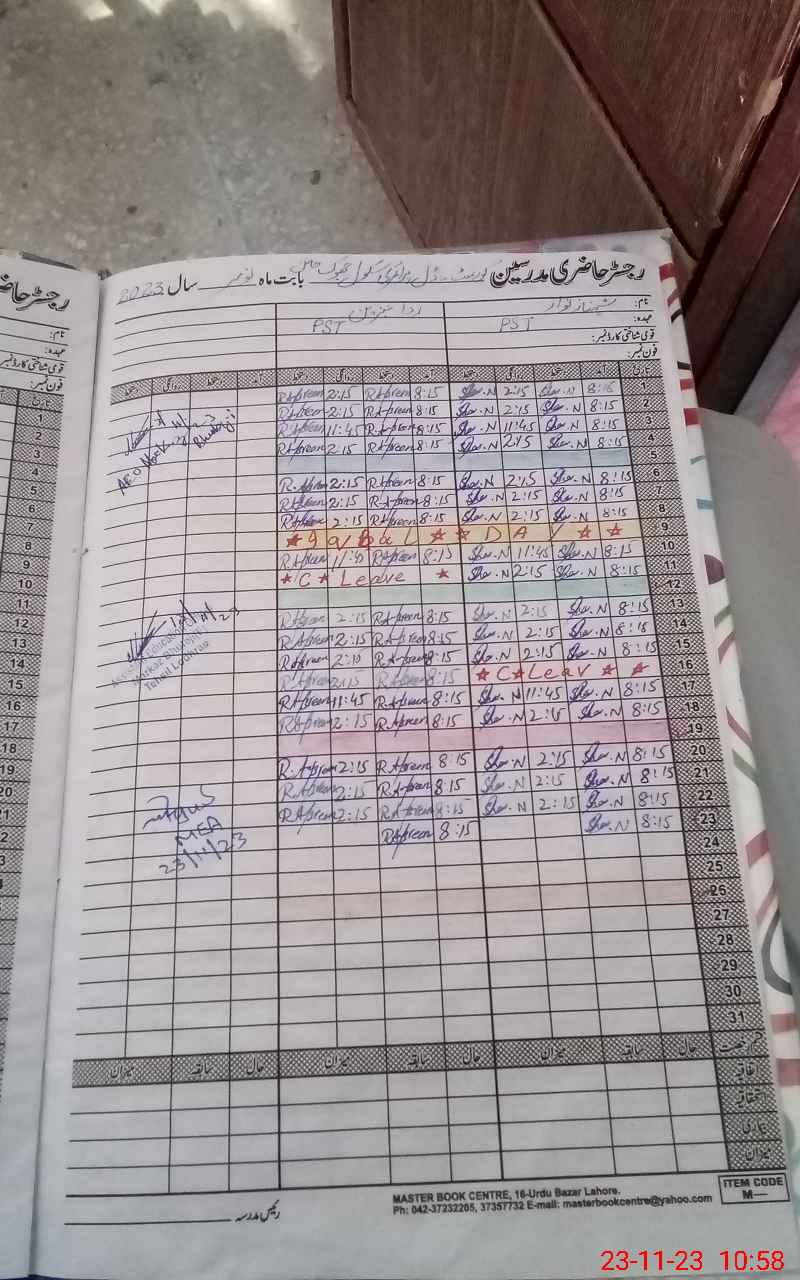 رجسٹر حاضری مدرسین گورنمنٹ ماڈل پرائمری سکول بابت ماہ نومبر سال 2023
رجسٹر حاضر
نام: شہناز نواز
عہدہ: PST PST
قومی شناختی کارڈ نمبر:
فون نمبر:
نام:
عہدہ:
قومی شناختی کارڈ نمبر:
فون نمبر:
تاریخ آمد دستخط روانگی دستخط آمد دستخط روانگی دستخط آمد دستخط روانگی دستخط
1 8:15 Sha.N 2:15 Sha.N 8:15 R.Afreen 2:15 R.Afreen
2 8:15 Sha.N 2:15 Sha.N 8:15 R.Afreen 2:15 R.Afreen
3 8:15 Sha.N 11:45 Sha.N 8:15 R.Afreen 11:45 R.Afreen
4 8:15 Sha.N 2:15 Sha.N 8:15 R.Afreen 2:15 R.Afreen
5
6 8:15 Sha.N 2:15 Sha.N 8:15 R.Afreen 2:15 R.Afreen
7 8:15 Sha.N 2:15 Sha.N 8:15 R.Afreen 2:15 R.Afreen
8 8:15 Sha.N 2:15 Sha.N 8:15 R.Afreen 2:15 R.Afreen
9 ★ Iqbal ★ ★ DAY ★ ★
10 8:15 Sha.N 11:45 Sha.N 8:15 R.Afreen 11:45 R.Afreen
11 8:15 Sha.N 2:15 Sha.N ★ C ★ Leave ★
12
13 8:15 Sha.N 2:15 Sha.N 8:15 R.Afreen 2:15 R.Afreen
14 8:15 Sha.N 2:15 Sha.N 8:15 R.Afreen 2:15 R.Afreen
15 8:15 Sha.N 2:15 Sha.N 8:15 R.Afreen 2:15 R.Afreen
16 ★ C ★ Leav ★ ★ 8:15 R.Afreen 2:15 R.Afreen
17 8:15 Sha.N 11:45 Sha.N 8:15 R.Afreen 11:45 R.Afreen
18 8:15 Sha.N 2:15 Sha.N 8:15 R.Afreen 2:15 R.Afreen
19
20 8:15 Sha.N 2:15 Sha.N 8:15 R.Afreen 2:15 R.Afreen
21 8:15 Sha.N 2:15 Sha.N 8:15 R.Afreen 2:15 R.Afreen
22 8:15 Sha.N 2:15 Sha.N 8:15 R.Afreen 2:15 R.Afreen
23 8:15 Sha.N 8:15 R.Afreen
24
25
26
27
28
29
30
31
AEO
Tehsil Lodhran
MEA
23/11/23
قسم رخصت حال سابقہ میزان حال سابقہ میزان حال سابقہ میزان
اتفاقیہ
استحقاقیہ
بیماری
میزان
رئیس مدرسہ
MASTER BOOK CENTRE, 16-Urdu Bazar Lahore.
Ph: 042-37232205, 37357732 E-mail: masterbookcentre@yahoo.com
ITEM CODE
M—
23-11-23 10:58